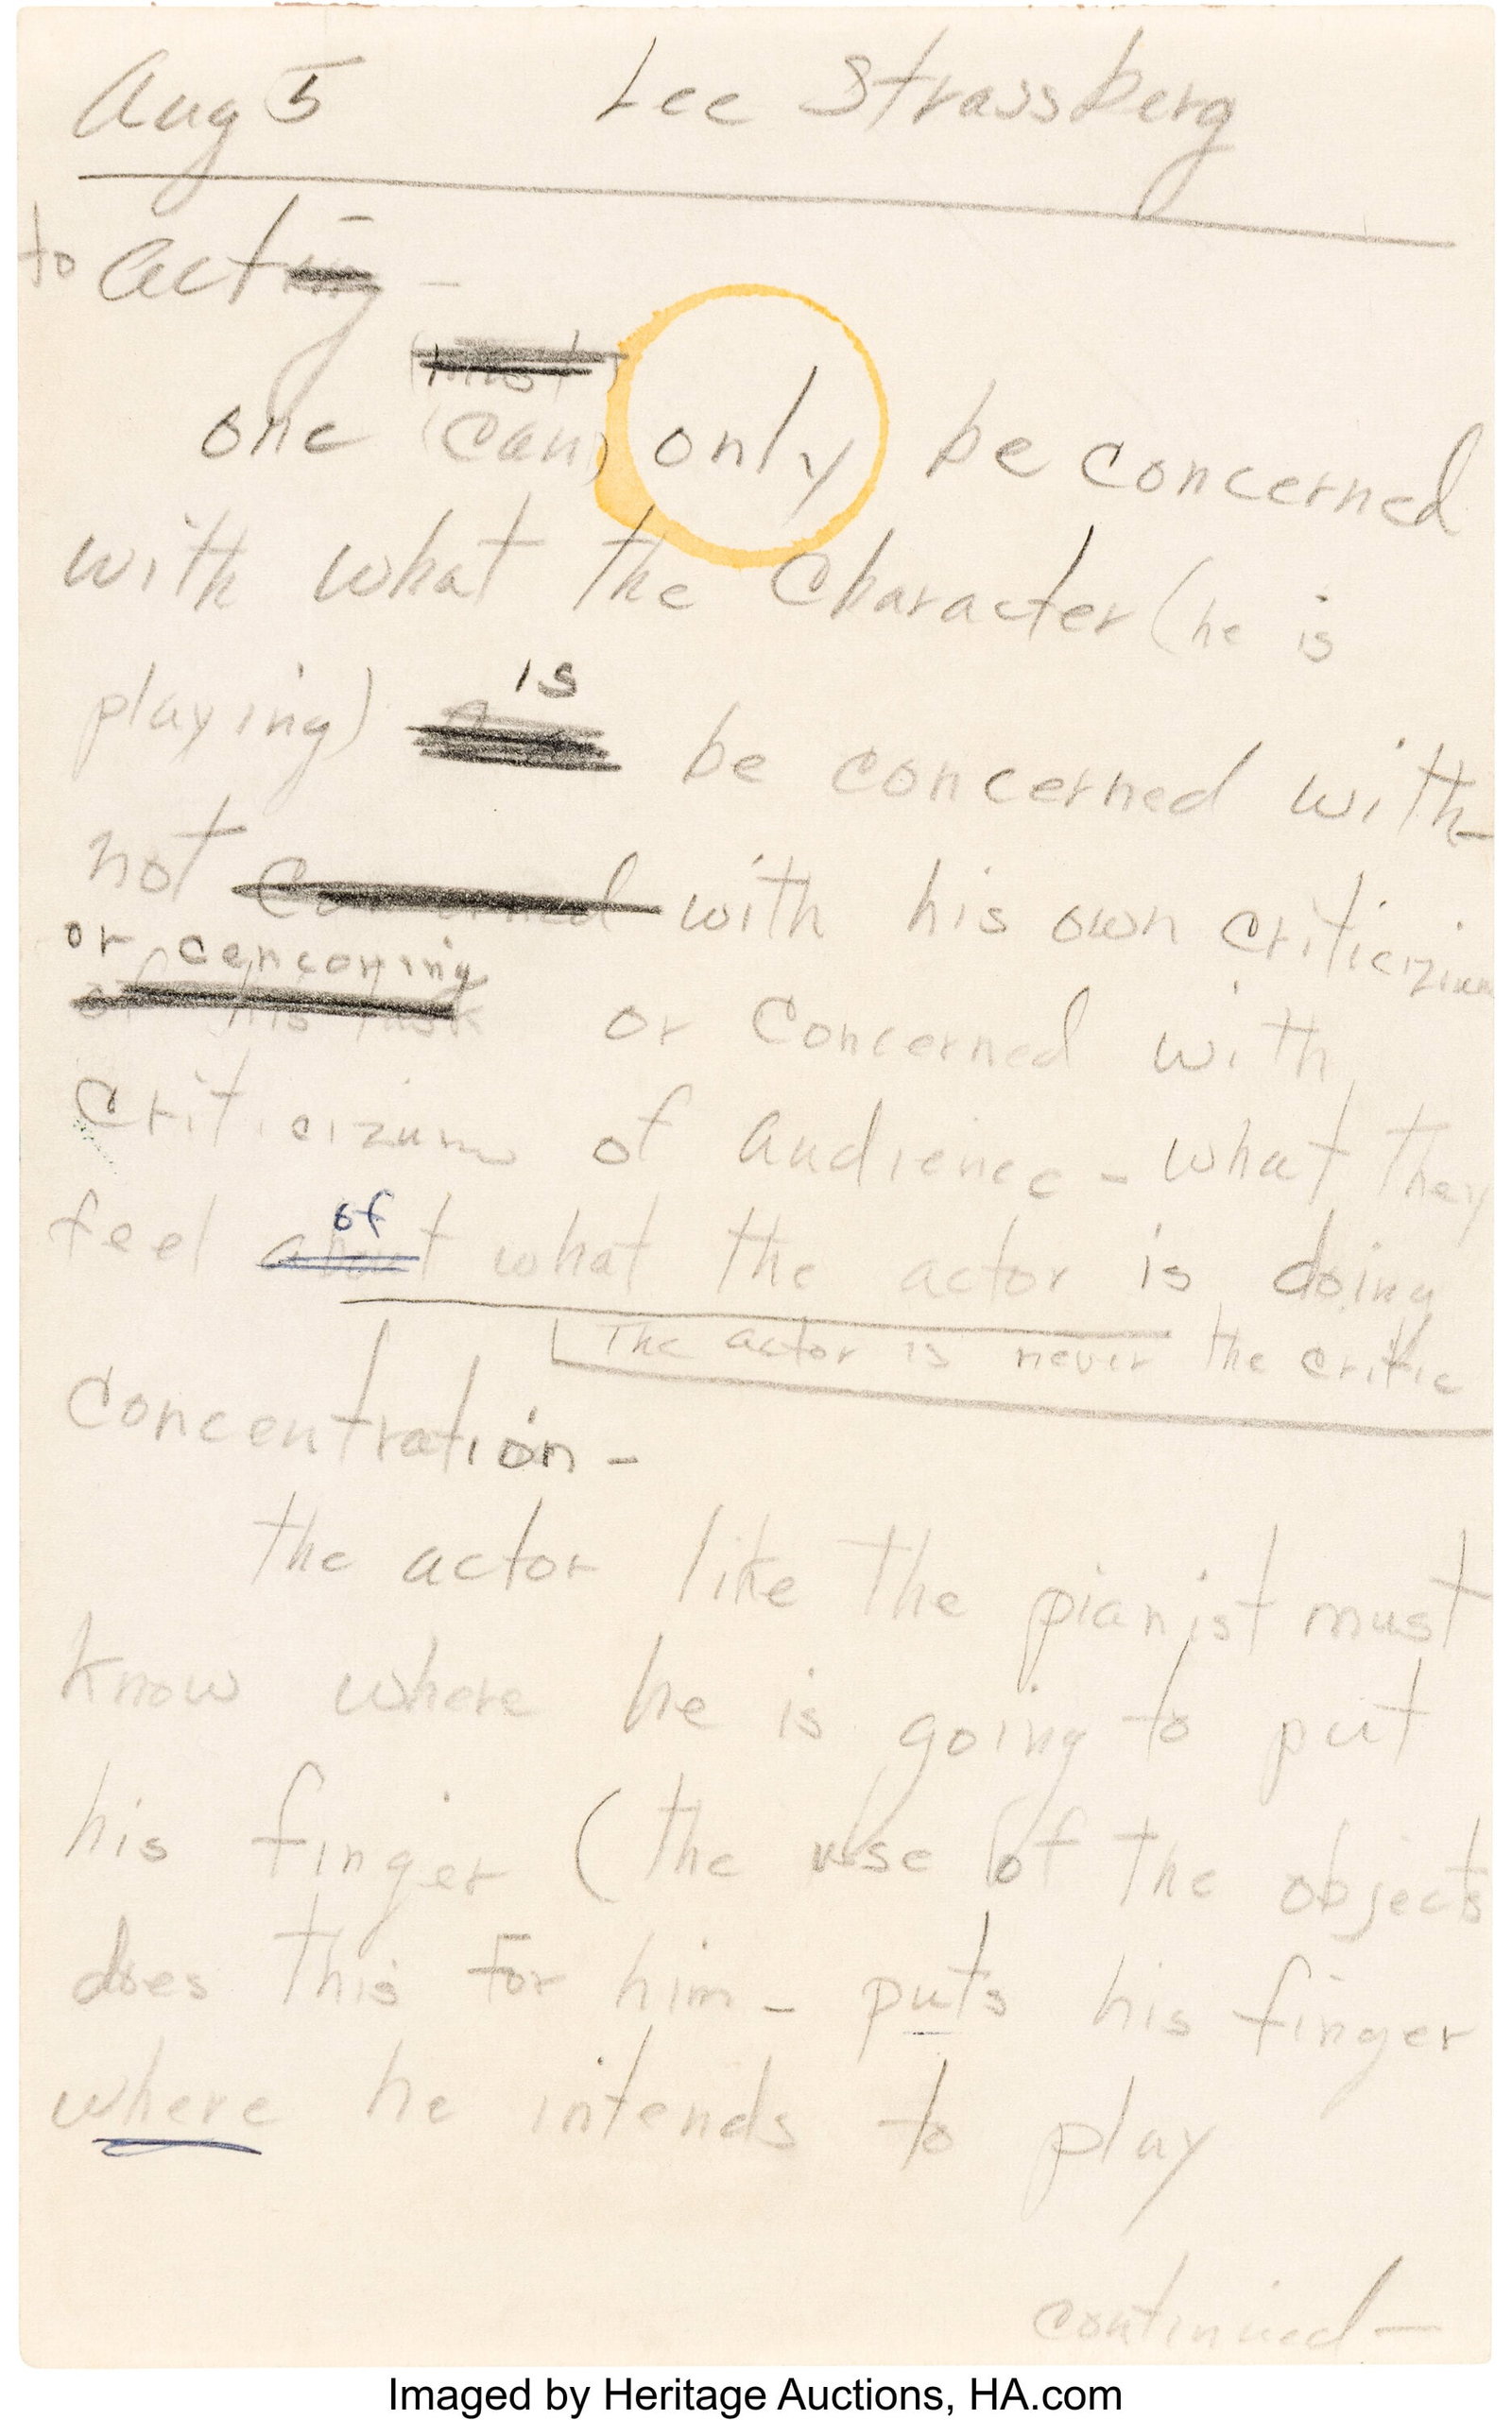 Aug 5 Lee Strassberg
to acting -
(must)
one (can) only be concerned
with what the Character (he is
is
playing) be concerned with-
not concerned with his own criticizium
or cencoring
of his task or concerned with
criticizum of audience - what they
of
feel about what the actor is doing
The actor is never the critic
concentration -
the actor like the pianist must
know where he is going to put
his finger (the use of the objects
does this for him - puts his finger
where he intends to play
continued -
Imaged by Heritage Auctions, HA.com